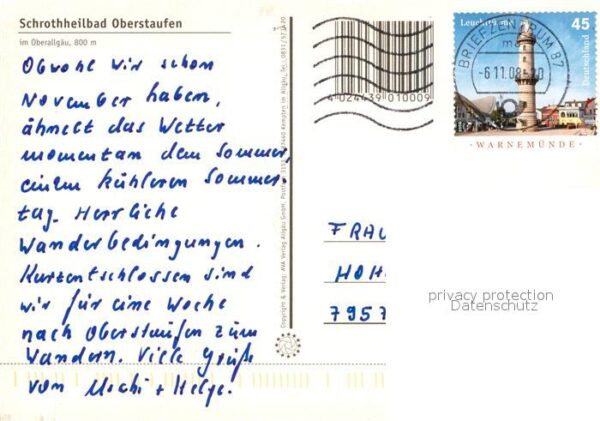 Schrothheilbad Oberstaufen
im Oberallgäu, 800 m
Obwohl wir schon
November haben,
ähnelt das Wetter
momentan dem Sommer,
einem kühleren Sommer-
tag. Herrliche
Wanderbedingungen.
Kurzentschlossen sind
wir für eine Woche
nach Oberstaufen zum
Wandern. Viele Grüße
von Uschi + Helge.
Copyright & Verlag: AVA Verlag Allgäu GmbH, Kempten im Allgäu, Tel.
4 024439 010009
45
Deutschland
WARNEMÜNDE
BRIEFZENTRUM 87
-6.11.08-20
FRAU
HOH
7957
privacy protection
Datenschutz